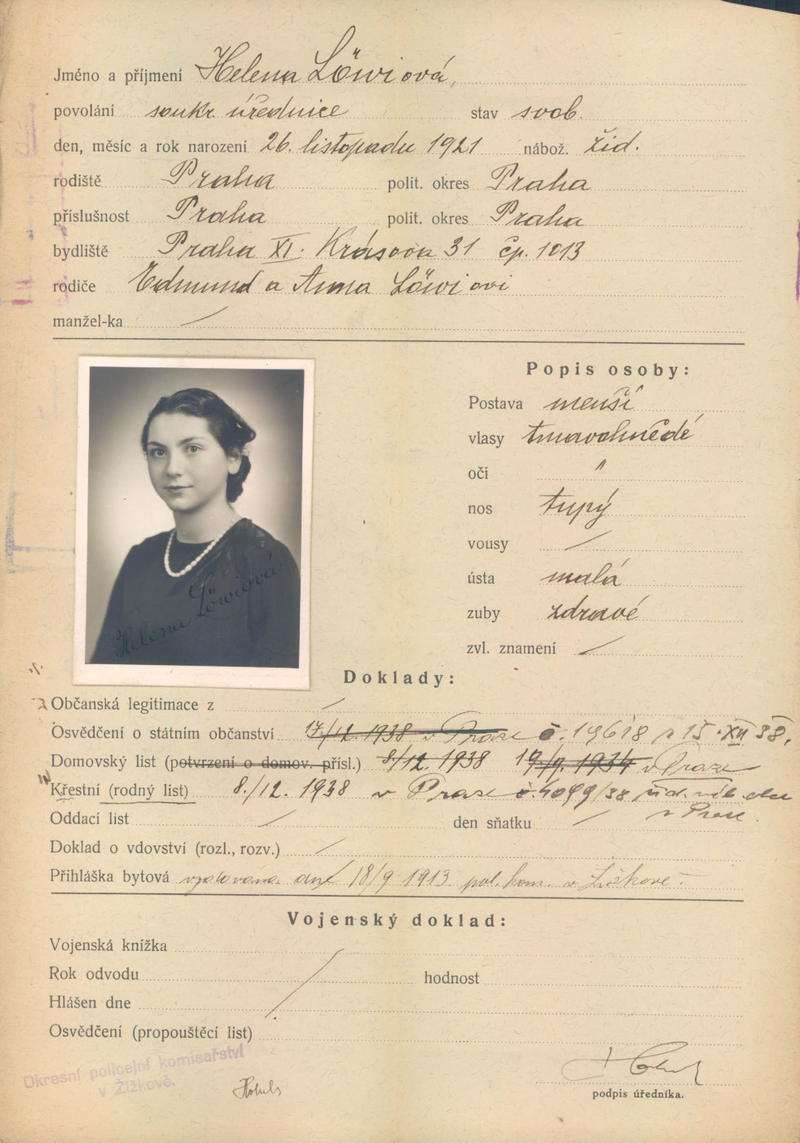 Jméno a příjmení Helena Löwiová,
povolání soukr. úřednice stav svob.
den, měsíc a rok narození 26. listopadu 1921 nábož. žid.
rodiště Praha polit. okres Praha
příslušnost Praha polit. okres Praha
bydliště Praha XI. Krásova 31 čp. 1013
rodiče Edmund a Anna Löwiovi
manžel-ka /
Popis osoby:
Postava menší
vlasy tmavohnědé
oči "
nos tupý
vousy /
ústa malá
zuby zdravé
zvl. znamení /
Helena Löwiová
Doklady:
Občanská legitimace z /
Osvědčení o státním občanství 17/12. 1938 v Praze č. 19618 z 15. XII 38,
Domovský list (potvrzení o domov. přísl.) 8/12. 1938 v Praze
Křestní (rodný list) 8./12. 1938 v Praze č. 4099/38
v Praze.
Oddací list / den sňatku /
Doklad o vdovství (rozl., rozv.) /
Přihláška bytová dne 18/9 1913 pol. kom. v Žižkově.
Vojenský doklad:
Vojenská knížka
Rok odvodu hodnost
Hlášen dne
Osvědčení (propouštěcí list)
Okresní policejní komisařství
v Žižkově.
podpis úředníka.